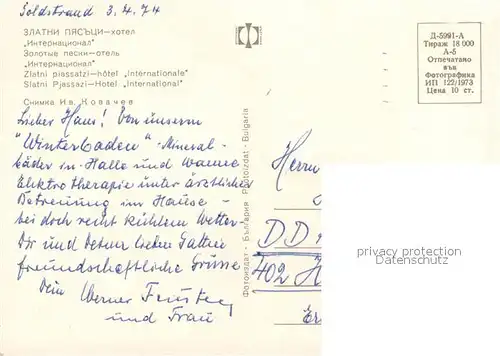 Goldstrand 3.4.74
ЗЛАТНИ ПЯСЪЦИ—хотел
„Интернационал"
Золотые пески—отель
„Интернационал"
Zlatni piassatzi—hôtel „Internationale"
Slatni Pjassazi—Hotel „International"
Снимка Ив. Ковачев
Lieber Hans! Von unserm
"Winterbaden" - Mineral-
bäder in Halle und Wanne
Elektrotherapie unter ärztlicher
Betreuung im Hause -
bei doch recht kühlem Wetter
Dir und Deinen lieben Gattin
freundschaftliche Grüsse
Dein Werner
und Frau
Фотоиздат - България Photoizdat - Bulgaria
Д-5991-А
Тираж 18 000
А-6
Отпечатано
във
Фотографика
ИП 122/1973
Цена 10 ст.
Herrn
DD
402 H
Er
privacy protection
Datenschutz